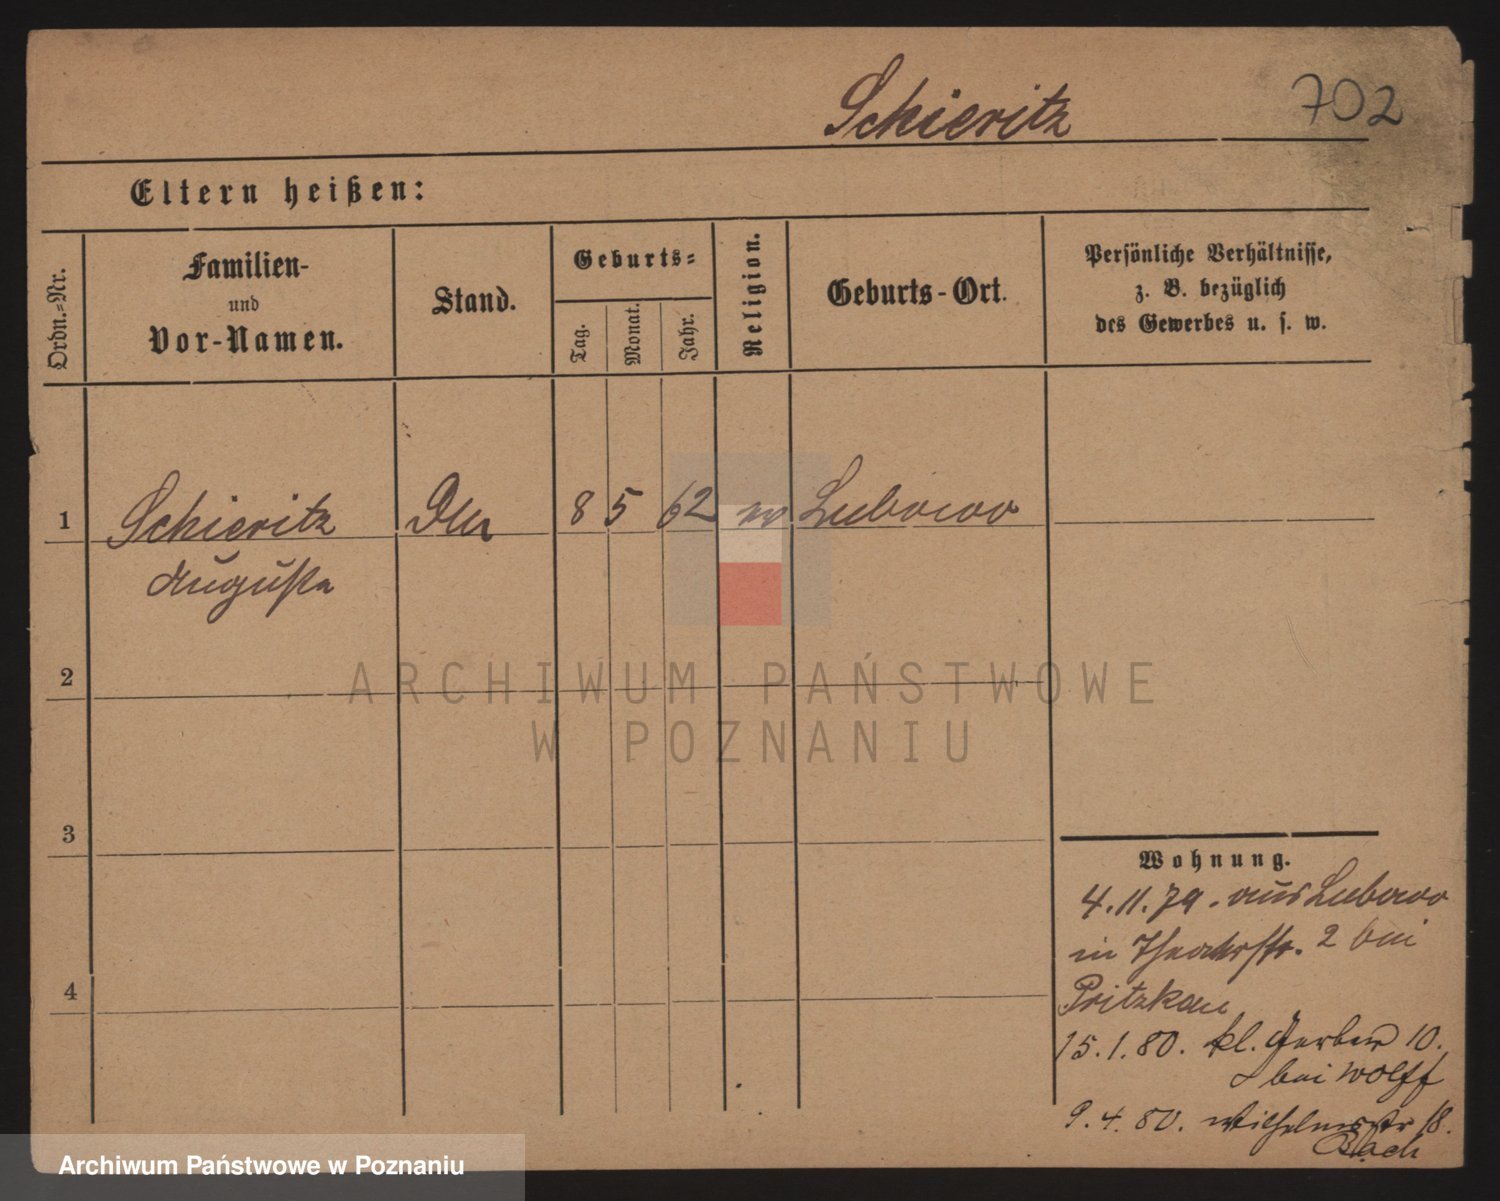 Schieritz 702
Eltern heißen:
Ordn.-Nr.
Familien-
und
Vor-Namen.
Stand.
Geburts-
Tag.
Monat.
Jahr.
Religion.
Geburts-Ort.
Persönliche Verhältnisse,
z. B. bezüglich
des Gewerbes u. s. w.
1 Schieritz 8 5 62 ev Lubowo
Auguste
2
3
4
Wohnung.
4.11.79. aus Lubowo
in Theaterstr. 2 bei
Pritzkau
15.1.80. kl. Gerber 10.
bei Wolff
9.4.80. Wilhelmstr 18.
Bach
ARCHIWUM PAŃSTWOWE
W POZNANIU
Archiwum Państwowe w Poznaniu